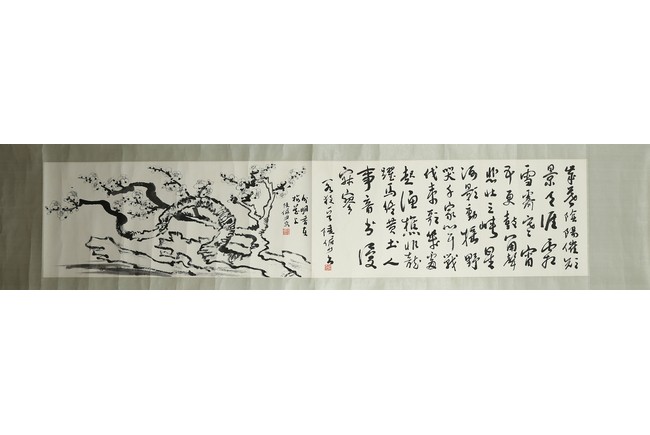 歲暮陰陽催短
景天涯霜
雪霽寒宵
五更鼓角聲
悲壯三峽星
河影動搖野
哭千家聞戰
伐夷歌幾處
起漁樵臥龍
躍馬終黃土人
事音書漫
寂寥
陸儼少書